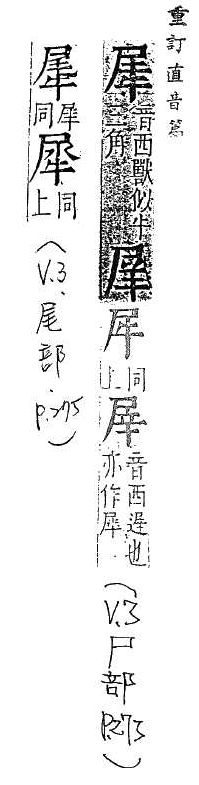 重訂直音篇
犀音西獸似牛三角同上屖音西遲也亦作犀(V.3尸部P.273)
同犀同上(V.3、尾部.p.275)